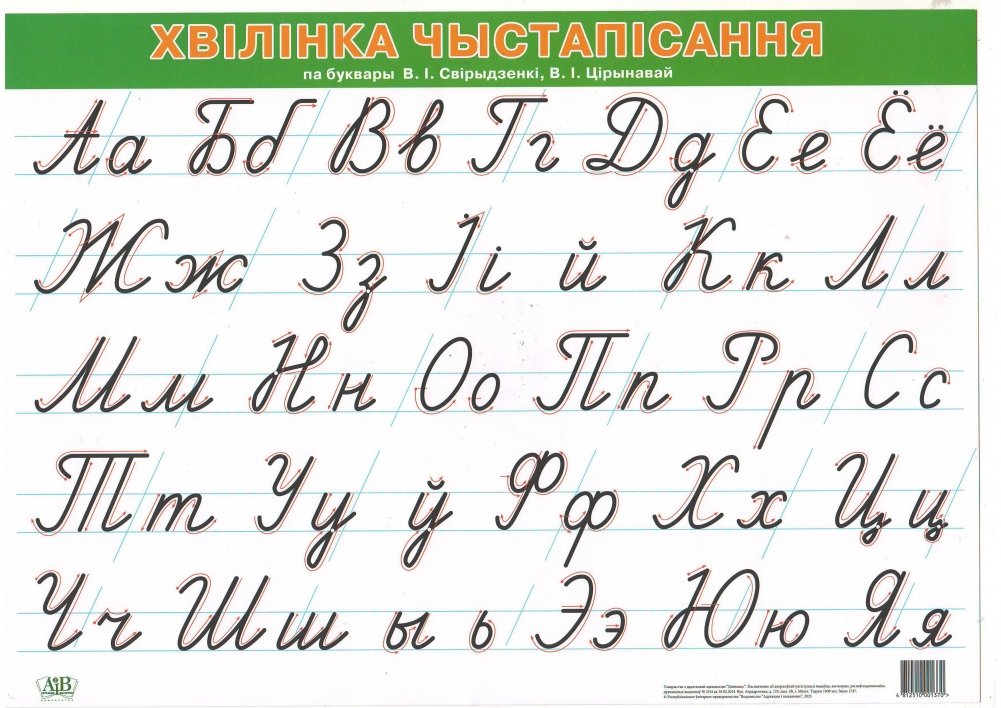 ХВІЛІНКА ЧЫСТАПІСАННЯ
па буквары В. І. Свірыдзенкі, В. І. Цірынавай
Аа Бб Вв Гг Дд Ее Ёё
Жж Зз Іі й Кк Лл
Мм Нн Оо Пп Рр Сс
Тт Уу ў Фф Хх Цц
Чч Шш ы ь Ээ Юю Яя
АіВ
4 812510 001370 >